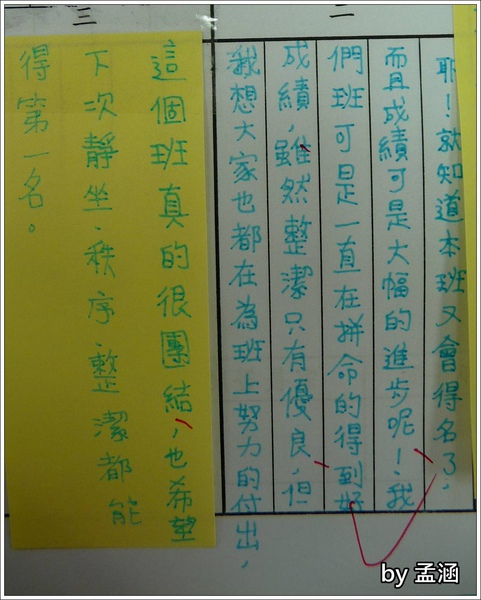 二
三
耶!就知道本班又會得名了,
而且成績可是大幅的進步呢!我
們班可是一直在拼命的得到好
成績,雖然整潔只有優良,但
我想大家也都在為班上努力的付出,
這個班真的很團結,也希望
下次靜坐、秩序、整潔都能
得第一名。
by 孟涵